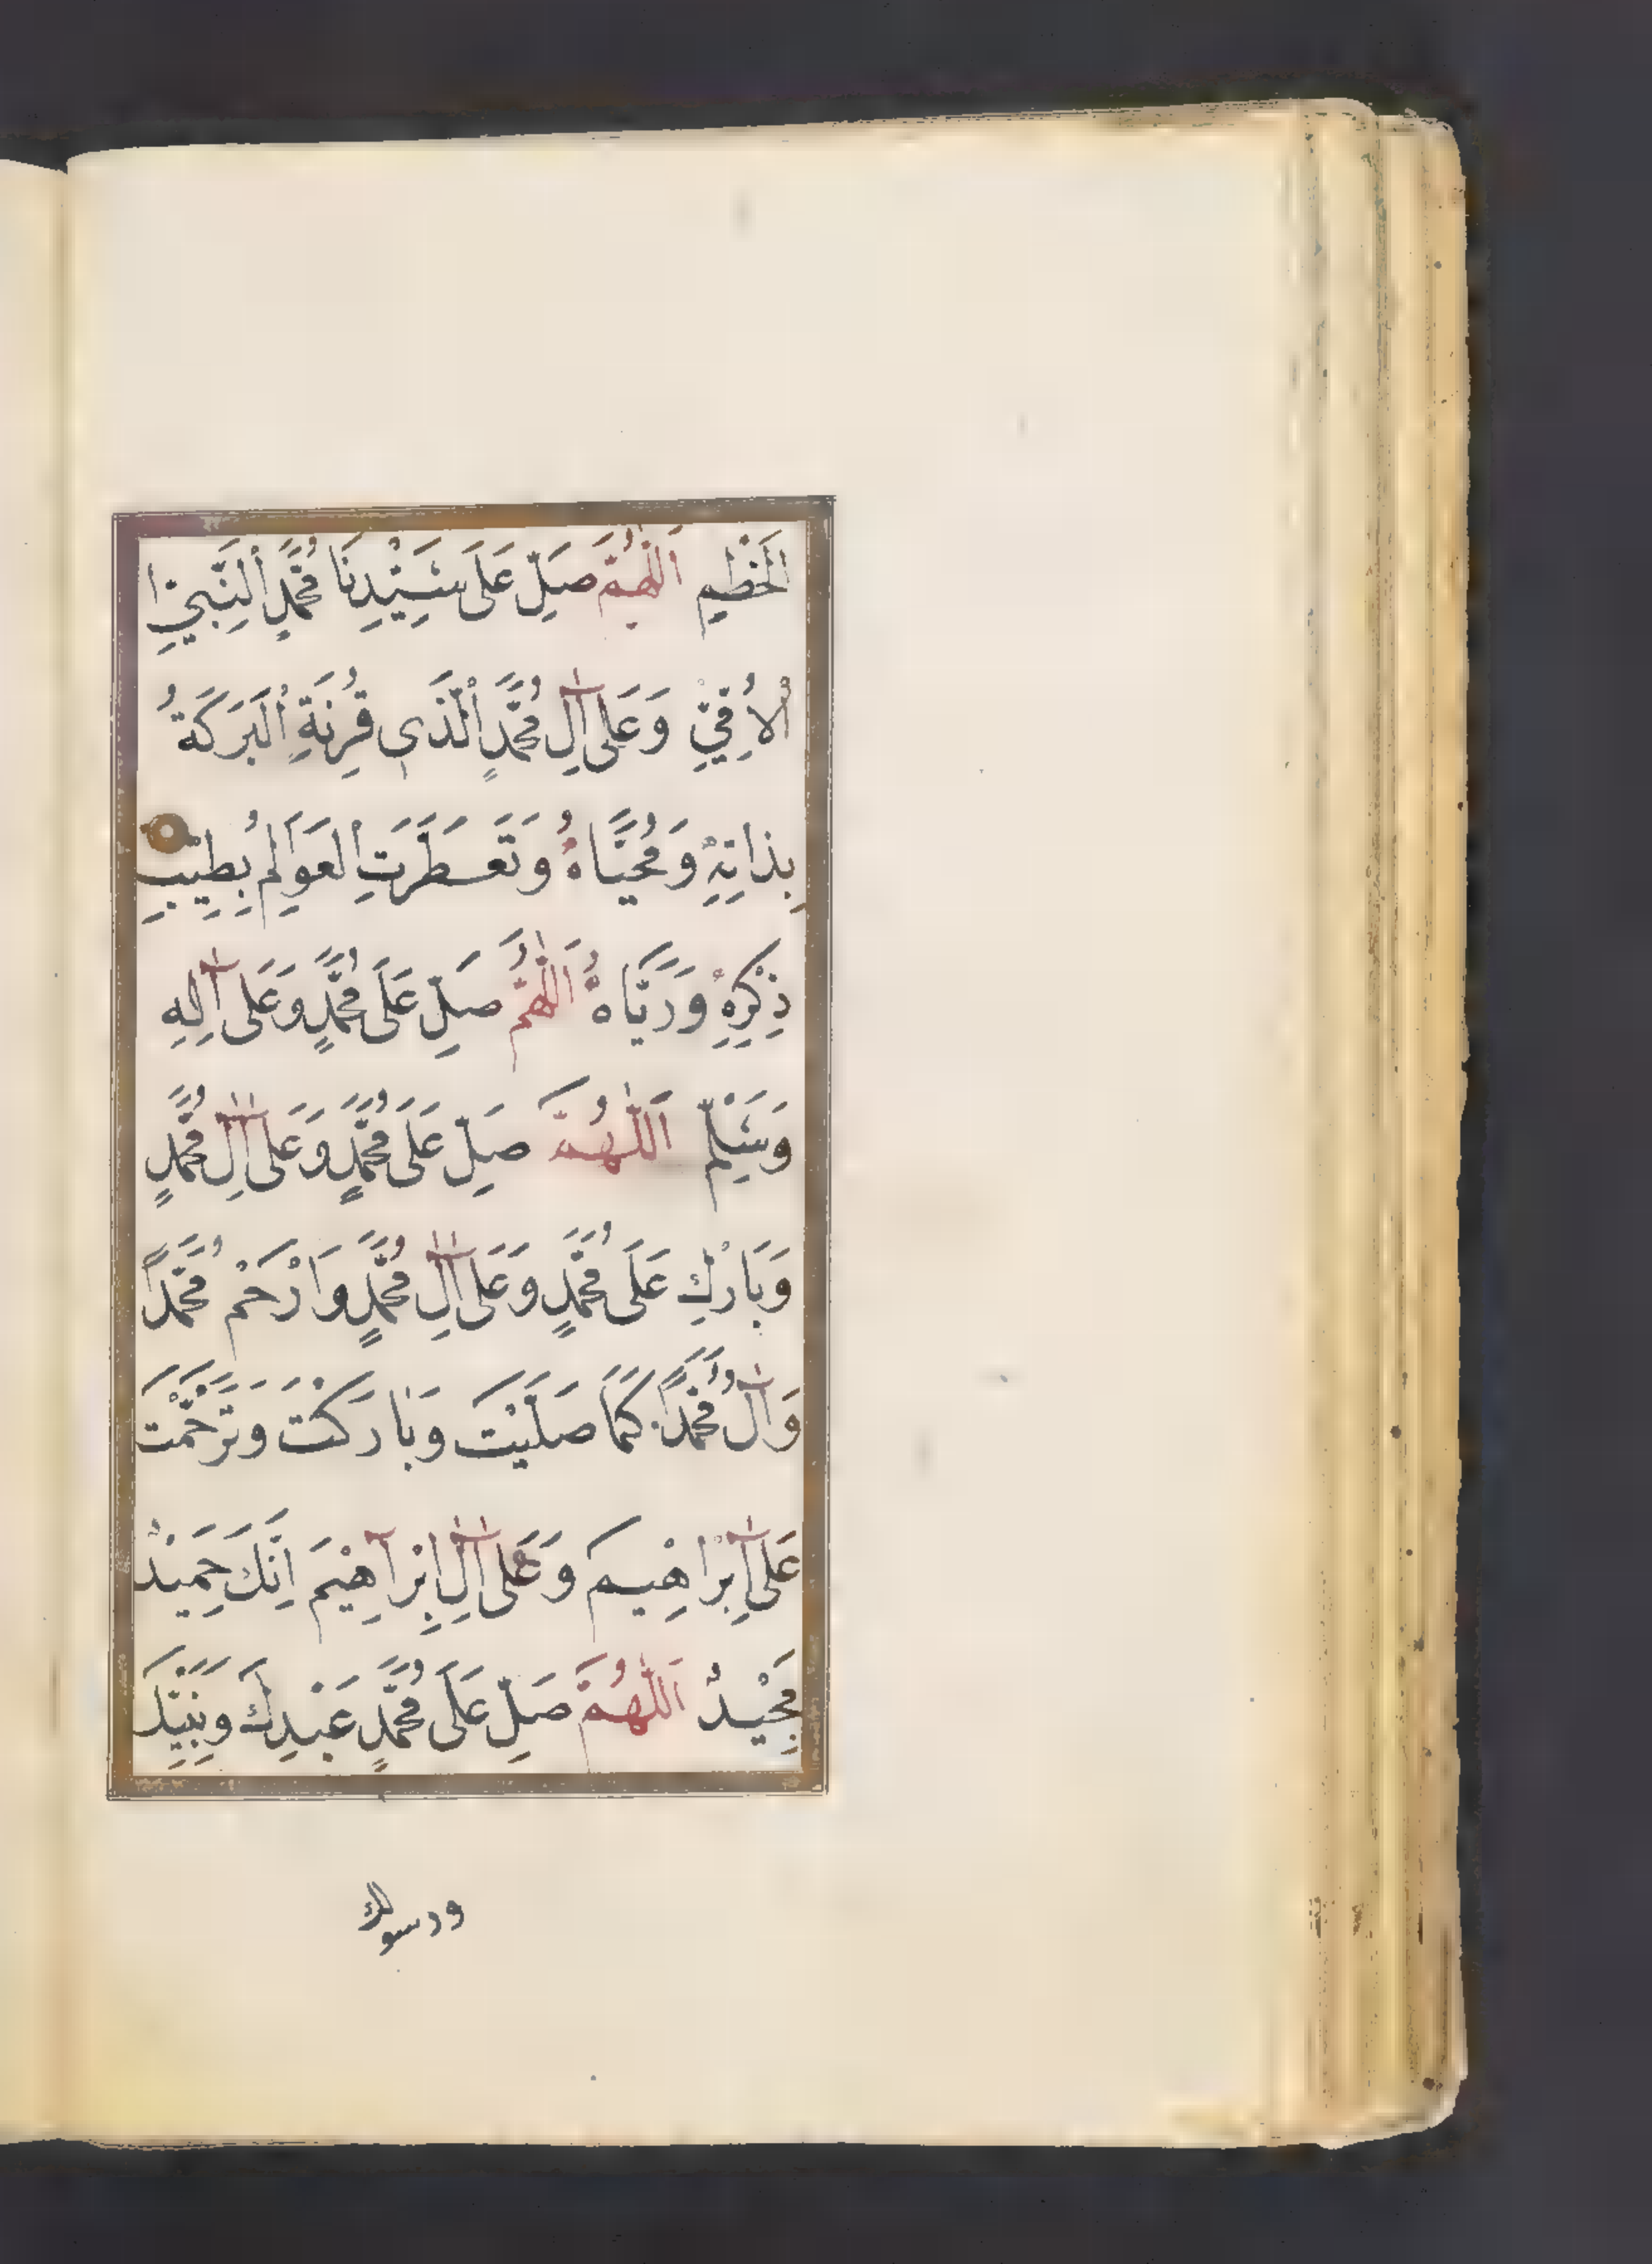 اَلْخَظِيمِ اَللّٰهُمَّ صَلِّ عَلَى سَيِّدِنَا مُحَمَّدٍ اَلنَّبِيِّ
الْاُمِّيِّ وَعَلٰى اٰلِ مُحَمَّدٍ الَّذَى قُرِنَةِ الْبَرَكَةُ
بِذَاتِهِ وَمُحَيَّاهُ وَتَعَطَّرَتِ الْعَوَالِمُ بِطِيبِ
ذِكْرِهِ وَرَيَّاهُ اَللّٰهُمَّ صَلِّ عَلَى مُحَمَّدٍ وَعَلٰى اٰلِهِ
وَسَلِّمْ اَللّٰهُمَّ صَلِّ عَلَى مُحَمَّدٍ وَعَلٰى اٰلِ مُحَمَّدٍ
وَبَارِكْ عَلَى مُحَمَّدٍ وَعَلٰى اٰلِ مُحَمَّدٍ وَارْحَمْ مُحَمَّدًا
وَاٰلَ مُحَمَّدًا كَمَا صَلَّيْتَ وَبَارَكْتَ وَتَرَحَّمْتَ
عَلٰى اِبْرَاهِيمَ وَعَلٰى اٰلِ اِبْرَاهِيْمَ اِنَّكَ حَمِيْدٌ
مَجِيْدٌ اَللّٰهُمَّ صَلِّ عَلَى مُحَمَّدٍ عَبْدِكَ وَنَبِيِّكَ
ورسولك